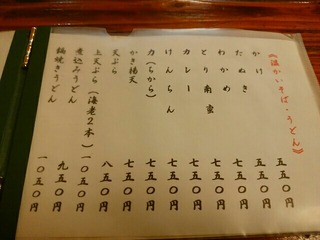 《温かいそば・うどん》
かけ 五五〇円
たぬき 五五〇円
わかめ 五五〇円
とり南蛮 七五〇円
カレー 七五〇円
けんちん 七五〇円
力（ちから） 七五〇円
かき揚天 七五〇円
天ぷら 八五〇円
上天ぷら（海老2本） 一〇五〇円
煮込みうどん 九五〇円
鍋焼きうどん 一〇五〇円